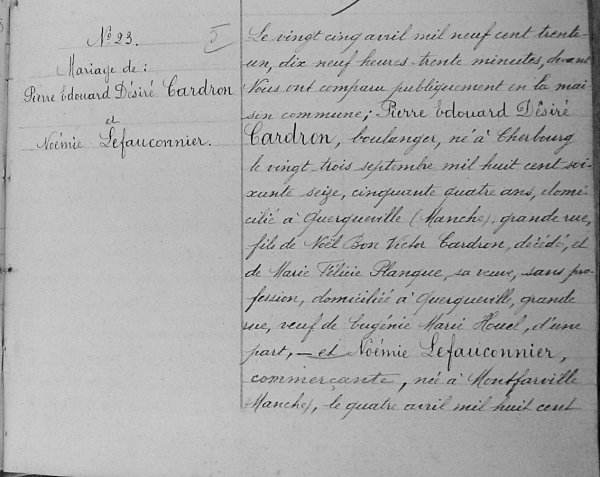 Nº 23.
Mariage de :
Pierre Edouard Désiré Cardron
et
Noémie Lefauconnier.
Le vingt cinq avril mil neuf cent trente-
un, dix neuf heures trente minutes, devant
Nous ont comparu publiquement en la mai
son commune ; Pierre Edouard Désiré
Cardron, boulanger, né à Cherbourg
le vingt trois septembre mil huit cent soi-
xante seize, cinquante quatre ans, domi-
cilié à Querqueville (Manche), grande rue,
fils de Noël Bon Victor Cardron, décédé, et
de Marie Félicie Planque, sa veuve, sans pro-
fession, domiciliée à Querqueville, grande
rue, veuf de Eugénie Marie Houel, d'une
part, — et Noémie Lefauconnier,
commerçante, née à Montfarville
(Manche), le quatre avril mil huit cent